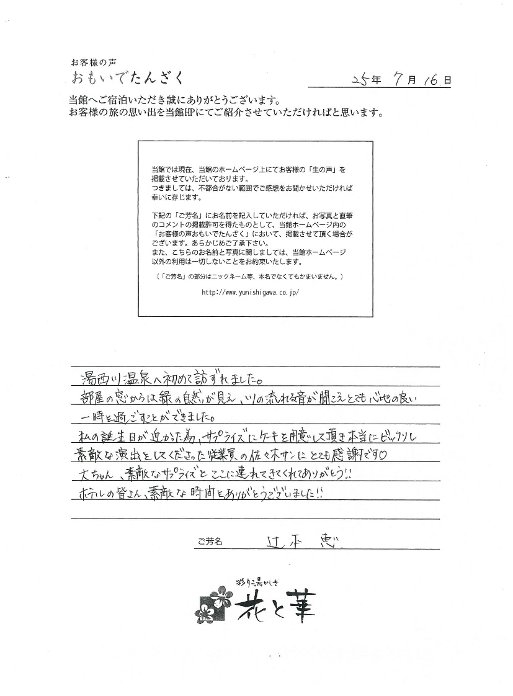 お客様の声
おもいでたんざく
25年 7月 16日
当館へご宿泊いただき誠にありがとうございます。
お客様の旅の思い出を当館HPにてご紹介させていただければと思います。
当館では現在、当館のホームページ上にてお客様の「生の声」を
掲載させていただいております。
つきましては、不都合がない範囲でご感想をお聞かせいただければ
幸いに存じます。
下記の「ご芳名」にお名前を記入していただければ、お写真と直筆
のコメントの掲載許可を得たものとして、当館ホームページ内の
「お客様の声おもいでたんざく」において、掲載させて頂く場合が
ございます。あらかじめご了承下さい。
また、こちらのお名前と写真に関しましては、当館ホームページ
以外の利用は一切しないことをお約束いたします。
（「ご芳名」の部分はニックネーム等、本名でなくてもかまいません。）
http://www.yunishigawa.co.jp/
湯西川温泉へ初めて訪ずれました。
部屋の窓からは緑の自然が見え、川の流れる音が聞こえとても心地の良い
一時を過ごすことができました。
私の誕生日が近かった為、サプライズにケーキを用意して頂き本当にビックリし
素敵な演出をしてくださった従業員の佐々木サンにとても感謝です♡
大ちゃん、素敵なサプライズとここに連れてきてくれてありがとう!!
ホテルの皆さん、素敵な時間をありがとうございました!!
ご芳名 辻本 恵
彩り湯かしき
花と華